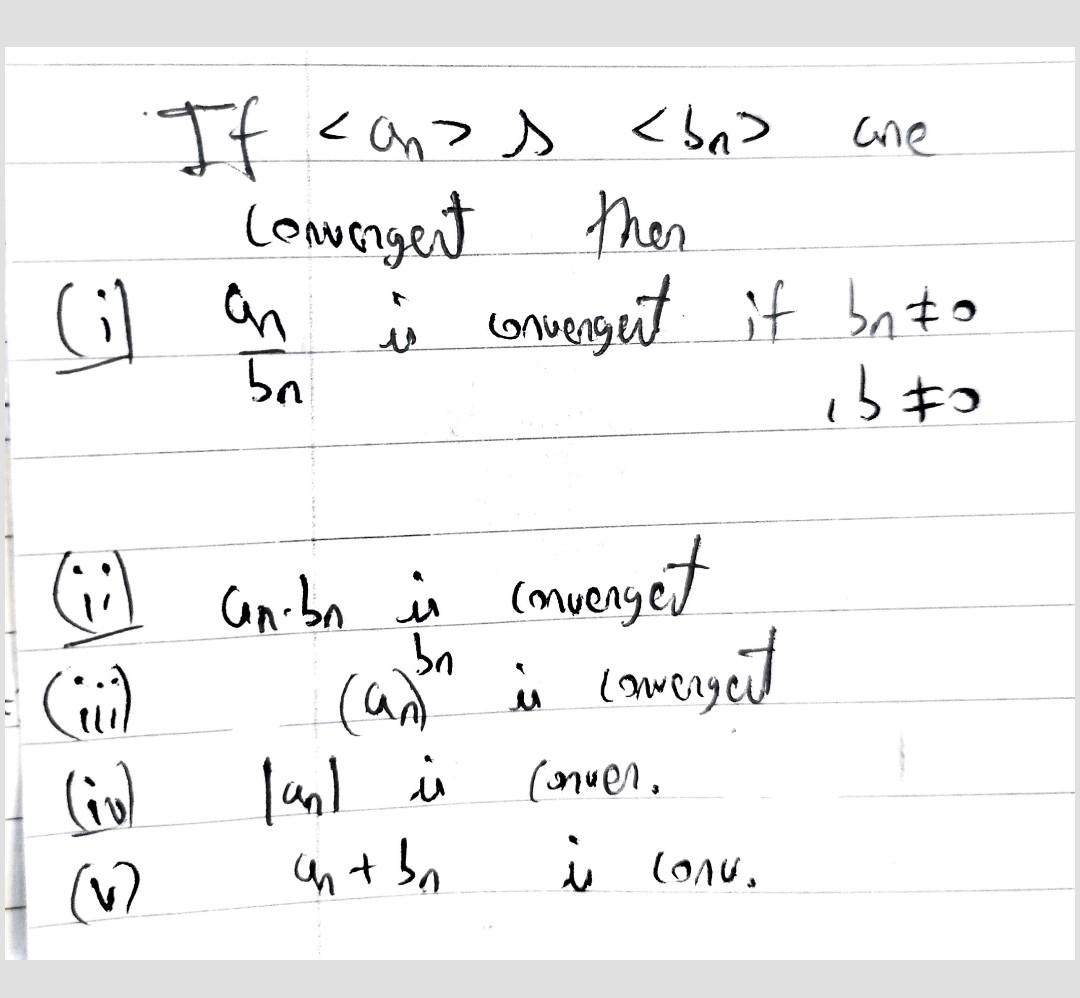 If <an> & <bn> are
convergent then
(i) an/bn is convergent if bn ≠ 0
, b ≠ 0
(ii) an.bn is convergent
(iii) (an)^bn is convergent
(iv) |an| is conver.
(v) an + bn is conv.